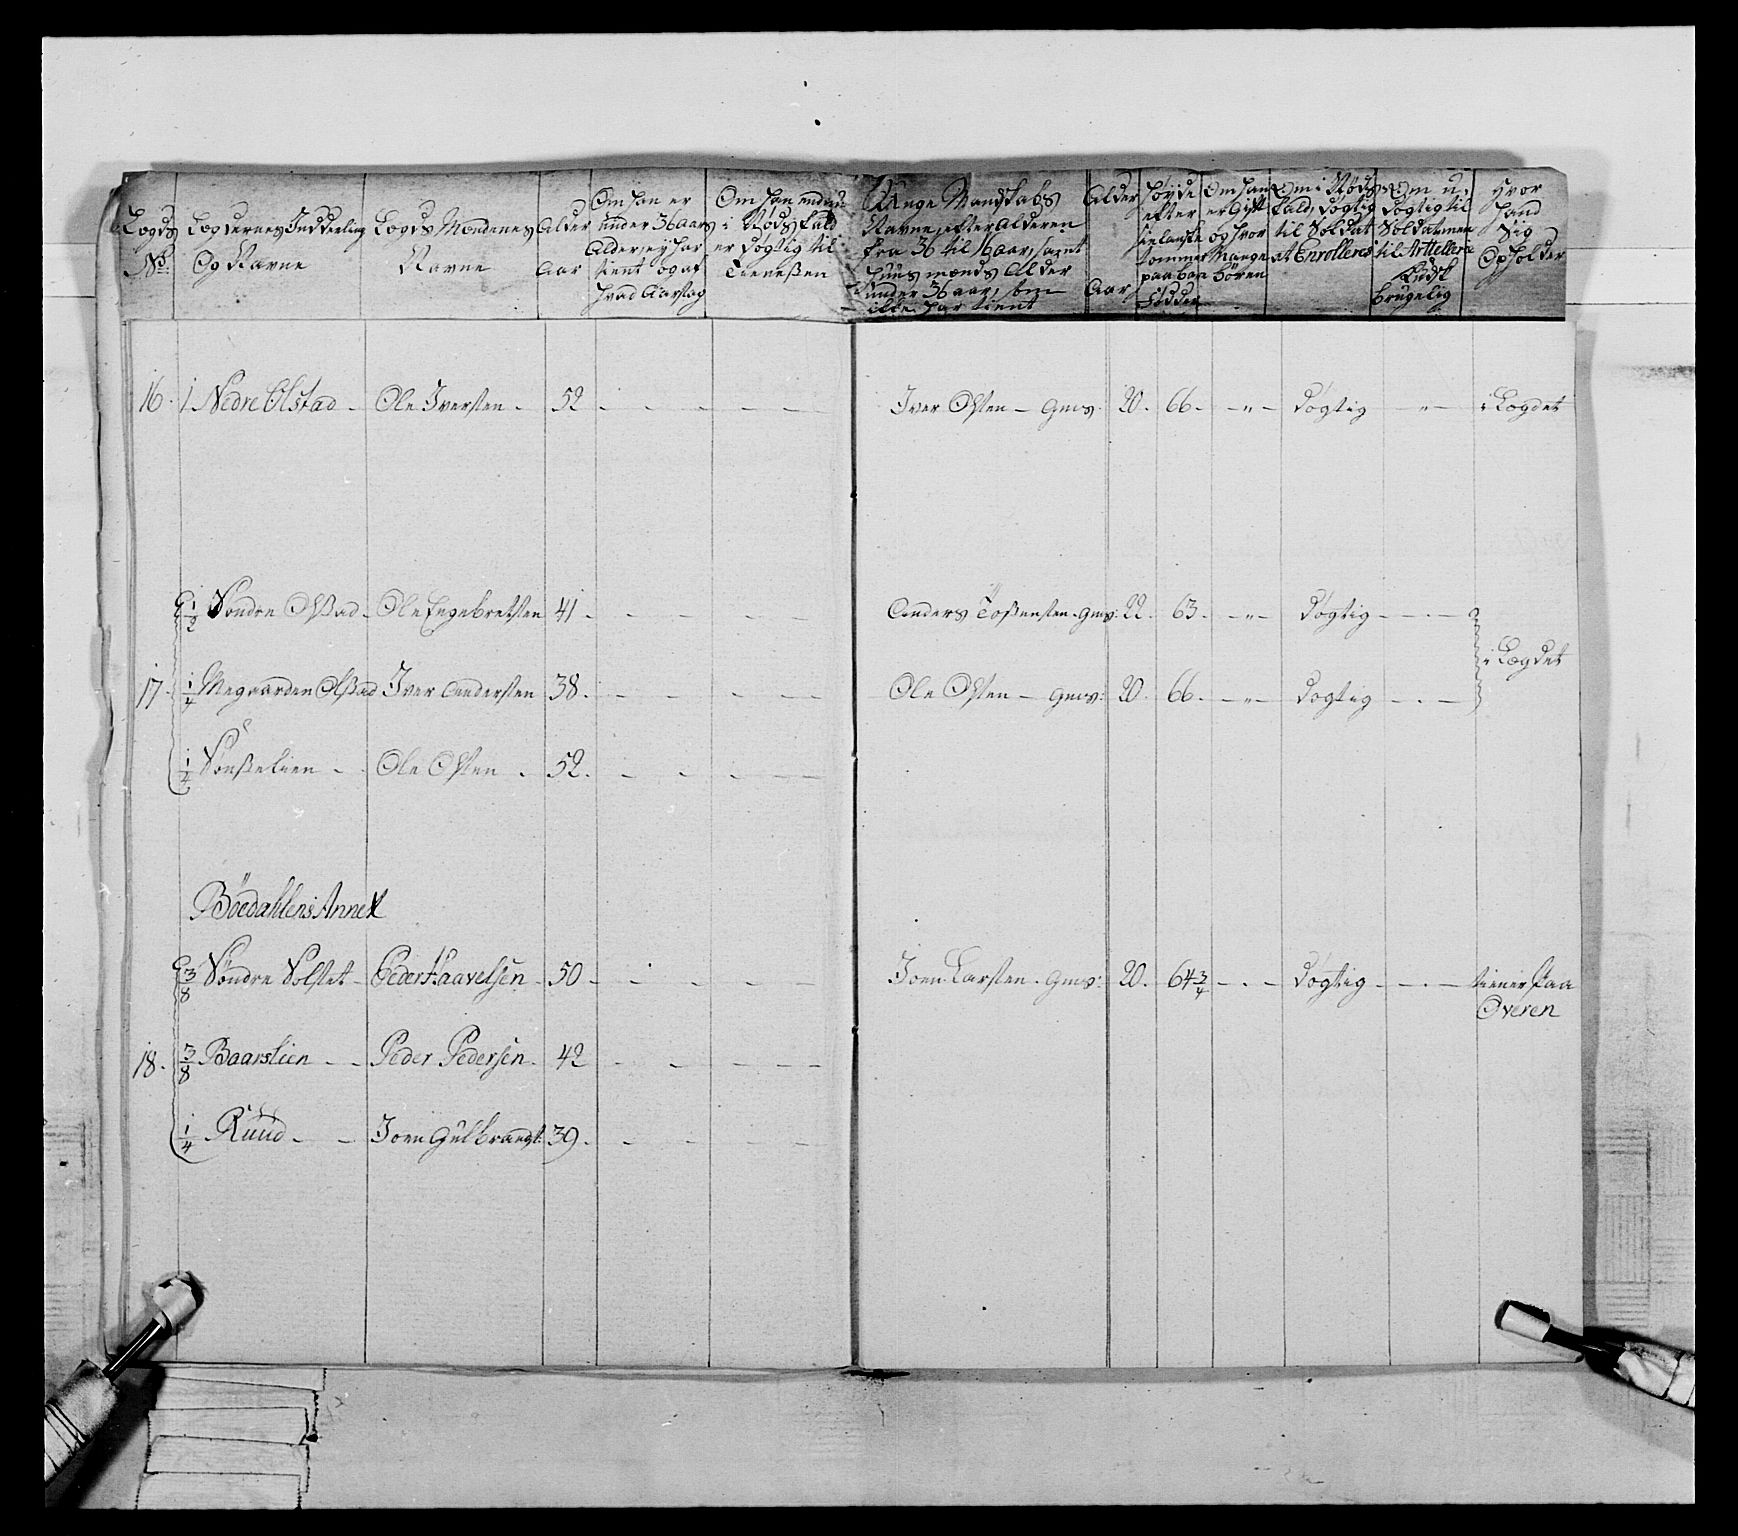 Legds No:
Legdernes Inddeeling Og Navne
Legds Mendenes Navne
Alder Aar
Om han er under 36 aars Alder, ey har tient og af hvad Aarsag
Om han endnu i Nøds fald er dygtig til Tienesten
Unge Mandskabs Navne, efter Alderen fra 36 til 16 aar, samt Huusmænds Alder under 36 aar, som icke har tient
Alder Aar
Høyde efter sielandske tommer paa bare Fødder
Om han er Gift og hvor Mange Børen
Om i Nøds fald, dygtig til Soldat at Enrolleris
Om u-dygtig til Soldat men til Artelleri Kudsk brugelig
Hvor Hand Sig Opholder
16. 1 Nedre Olstad - Ole Iversen - 52 - Iver Olsen - Gms. 20. 66. - " - dygtig - " - i Legdet
1/2 Søndre Olstad - Ole Engebretsen 41 - Anders Tostensen - Gms: 22. 63. - " - dygtig - - -
i Legdet
17. 1/4 Megaarden Olstad Iver Andersen 38 - Ole Olsen - Gms: 20. 66. - " - dygtig - - -
1/4 - Ole Olsen - 52.
Böedahlens Annex
3/8 Søndre Solstet - Peder Haavelsen - 50 - Joen Larsen - Gms: 20. 64 3/4 - - - dygtig - - - tiener paa
Overen
18. 3/8 Baarslien - - Peder Pedersen - 42
1/4 Ruud - - Joen Gulbrands: 39 -